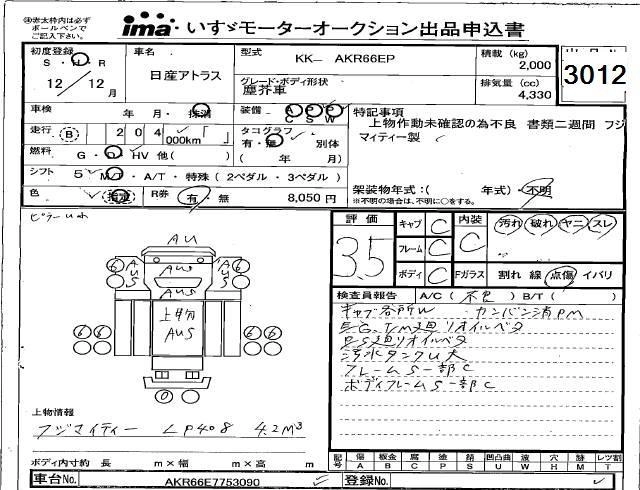 ima いすゞモーターオークション出品申込書
④赤太枠内は必ず
ボールペンで
ご記入下さい。
3012
初度登録 車名 型式 KK- AKR66EP 積載 (kg) 2,000
S・H・R 12/12月 日産アトラス
グレード・ボディ形状 塵芥車 排気量 (cc) 4,330
車検 年 月・抹消 装備 A P P C S W
特記事項
上物作動未確認の為不良 書類二週間 フジ
マイティー製
走行 B 204 000km 「 」 タコグラフ 有・無 別体
( 年 月)
燃料 G・D・HV 他( )
シフト 5 MT・A/T・特殊 (2ペダル・3ペダル)
架装物年式:( 年式)・不明
※不明の場合は、不明に○をする。
色 指定 R券 有・無 8,050円
評価 3.5
キャブ C 内装 C 汚れ 破れ ヤニ スレ
フレーム C
ボディ C Fガラス 割れ 線 点傷 イバリ
AU
AUS
AUS
AUS
AUS
6 6
上物分
AUS
66 66
0
検査員報告 A/C (不良) B/T ( )
キャブ各所W カンバン消PM
EG,T/M廻リオイルベタ
PS廻リオイルベタ
汚水タンクU大
フレームS一部C
ボディフレームS一部C
上物情報
フジマイティー LP408 4.2M³
ボディ内寸約 長 m×幅 m×高 m
記号 傷 板金 腐 塗 錆 凹凸曲 違 穴 跡 レツ割
A B C P S U W H M T
車台No. AKR66E7753090 登録No.